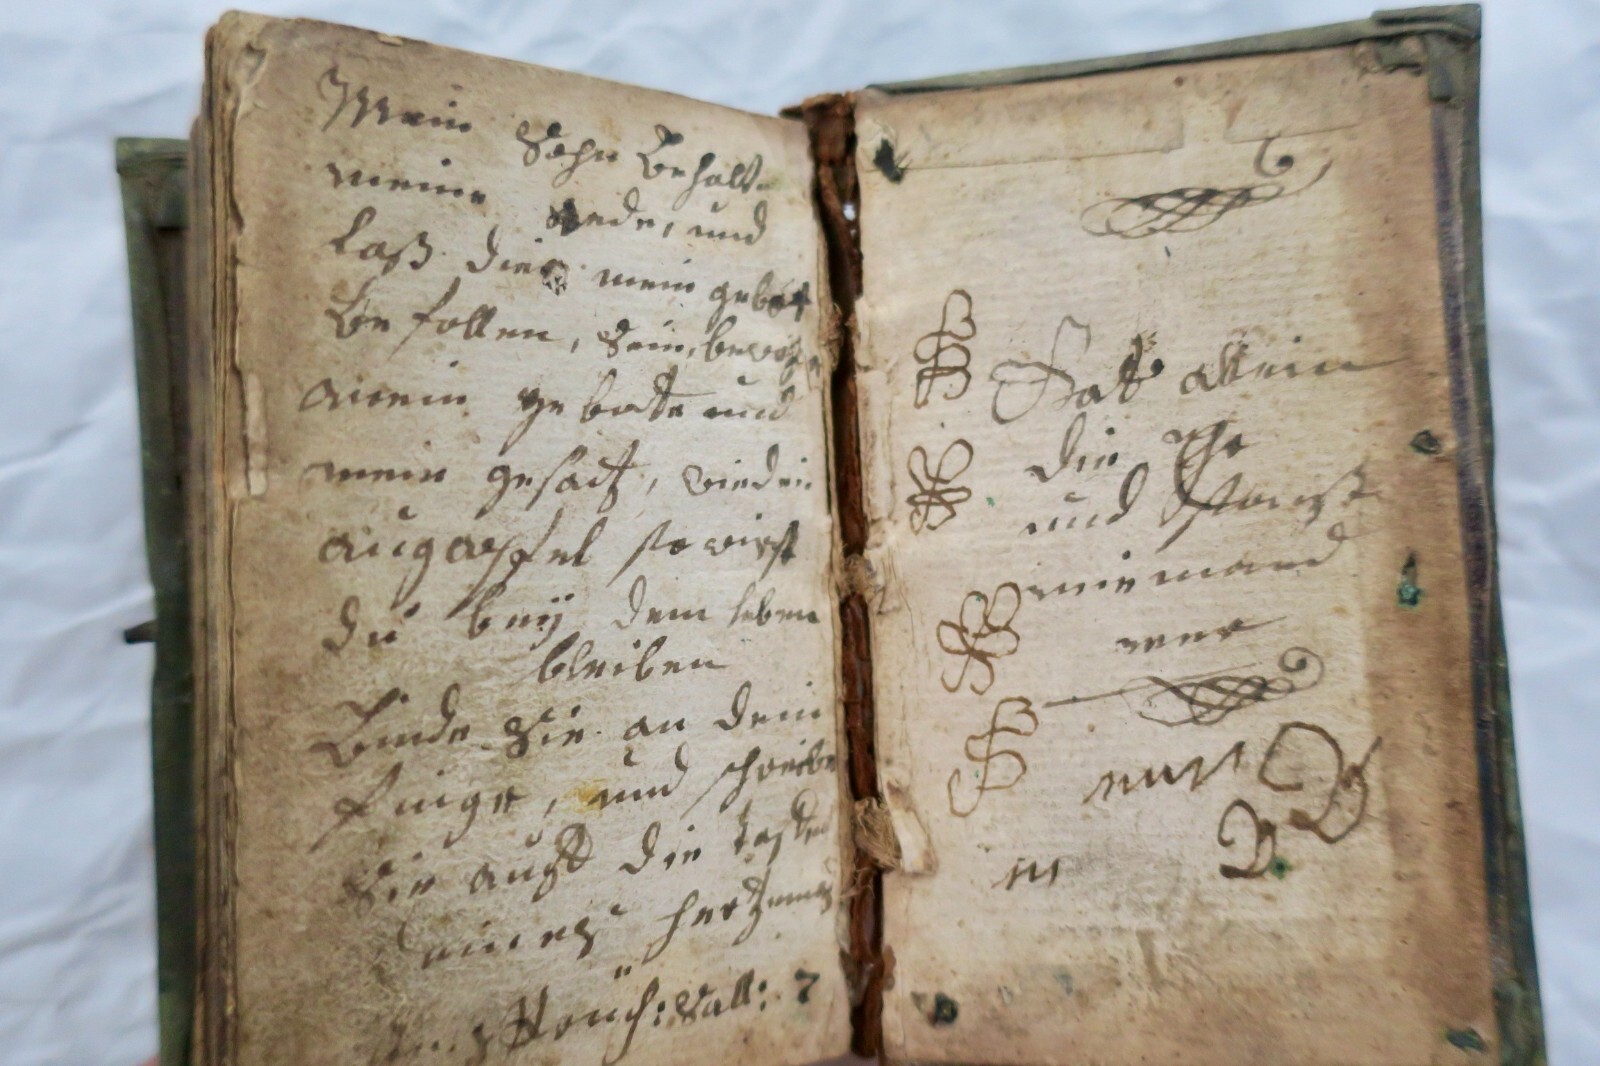 Mein Sohn Behalte
meine Rede, und
Laß dier mein gebott
Be follen, Sein, bewahre
mein gebotte und
mein gesätz, wie dein
augapffel so wirst
du beÿ dem leben
bleiben
Binde Sie an dein
finger, und schreibe
Sie auff die taffel
deines hertzens
Sprüch: Sall: 7
Gott allein
die Ehr
und sonst
niemand
mer
nur